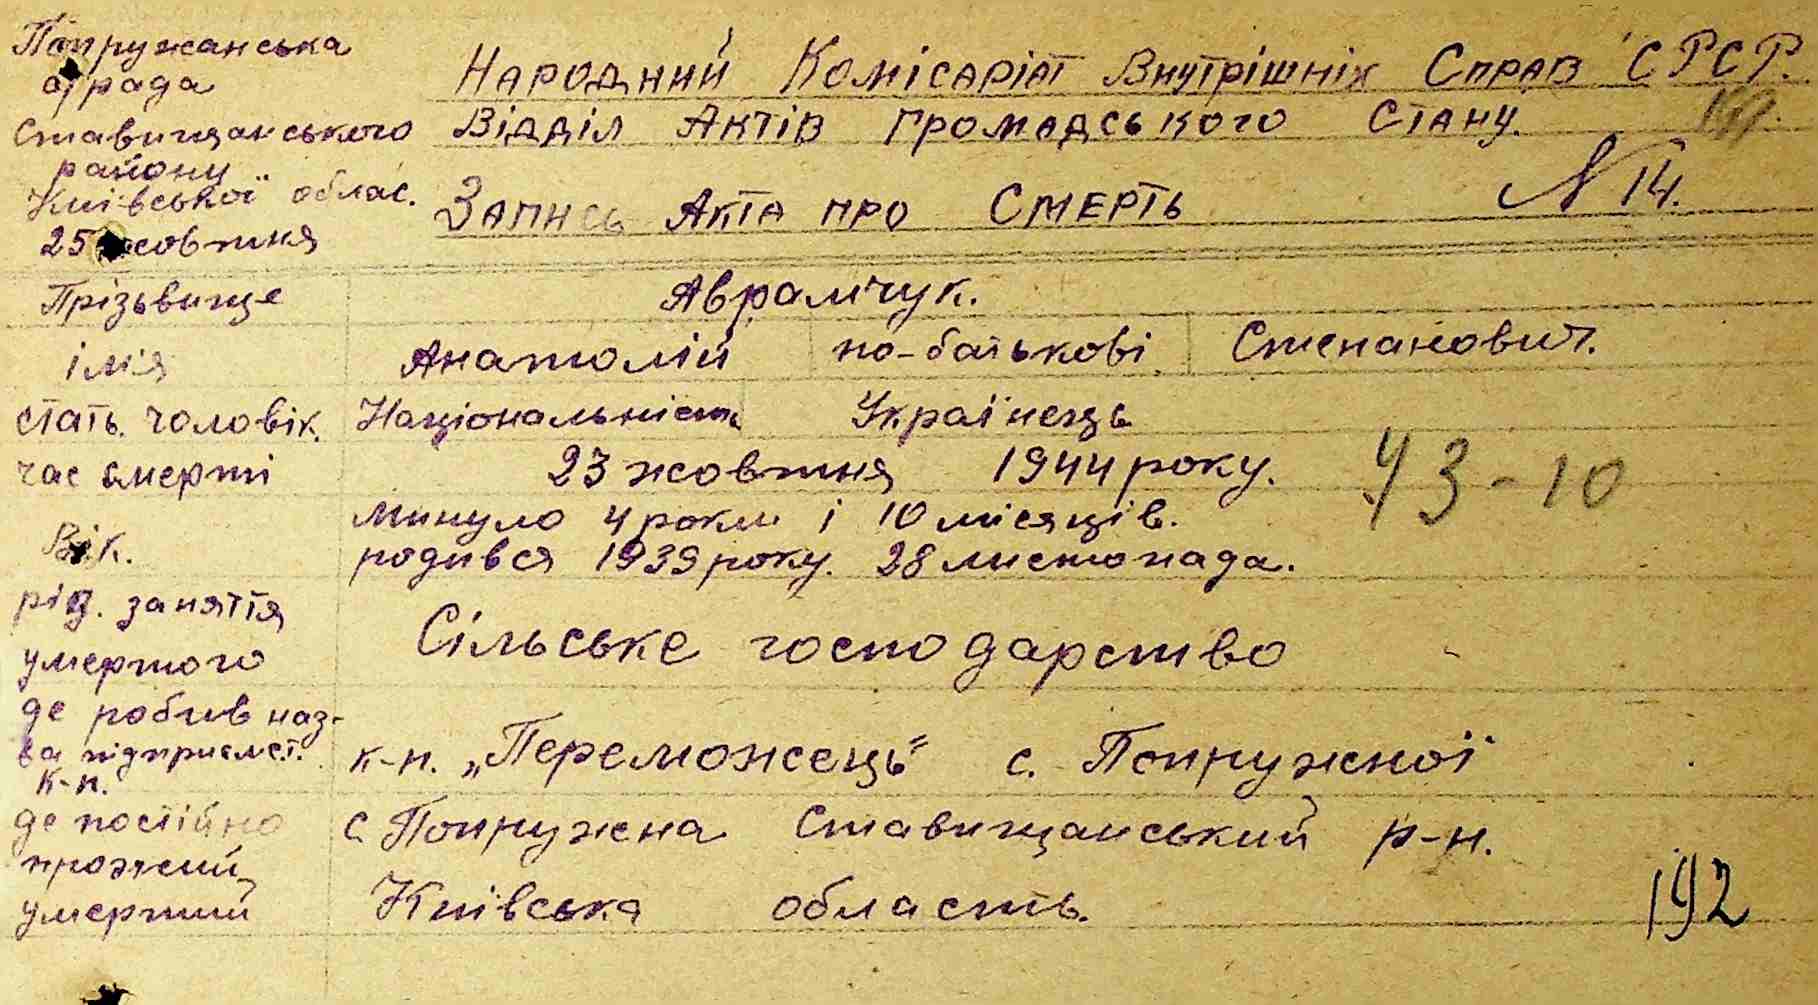 Попружанська
с/рада
Ставищанського
району
Київської облас.
25 жовтня
Народний Комісаріат Внутрішніх Справ СРСР.
Відділ Актів Громадського Стану.
Запись Акта про Смерть N 14.
Прізьвище Аврамчук.
імя Анатолій по-батькові Степанович.
стать. чоловік. Національність Українець
час смерті 23 жовтня 1944 року. 43-10
Вік. минуло 4 роки і 10 місяців.
родився 1939 року. 28 листопада.
рід. заняття
умертого Сільське господарство
де робив наз-
ва підприємст.
к-п. к-п. „Переможець" с. Попружної
де постійно с Попружна Ставищанський р-н.
прожсий
умертий Київська область.
192